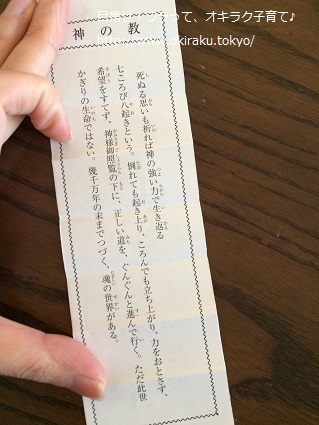 目指せ
って、オキラク子育て♪
http://www.okiraku.tokyo/
神の教
死ぬる思いも祈れば神の強い力で生き返る
七ころび八起きという。倒れても起き上り、ころんでも立ち上がり、力をおとさず、
希望をすてず、神様御照覧の下に、正しい道を、ぐんぐんと進んで行く。ただ此世
かぎりの生命ではない。幾千万年の末までつづく、魂の世界がある。